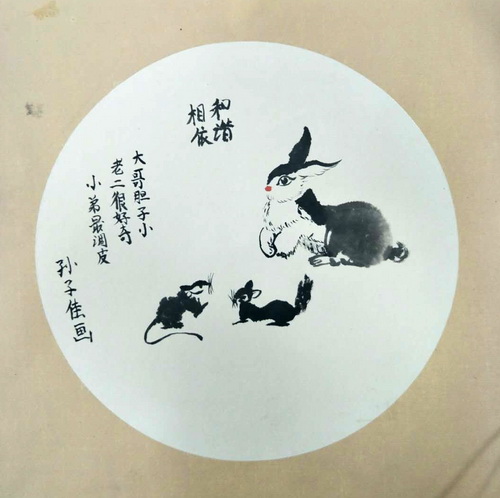 和谐
相依
大哥胆子小
老二很好奇
小弟最调皮
孙子佳画